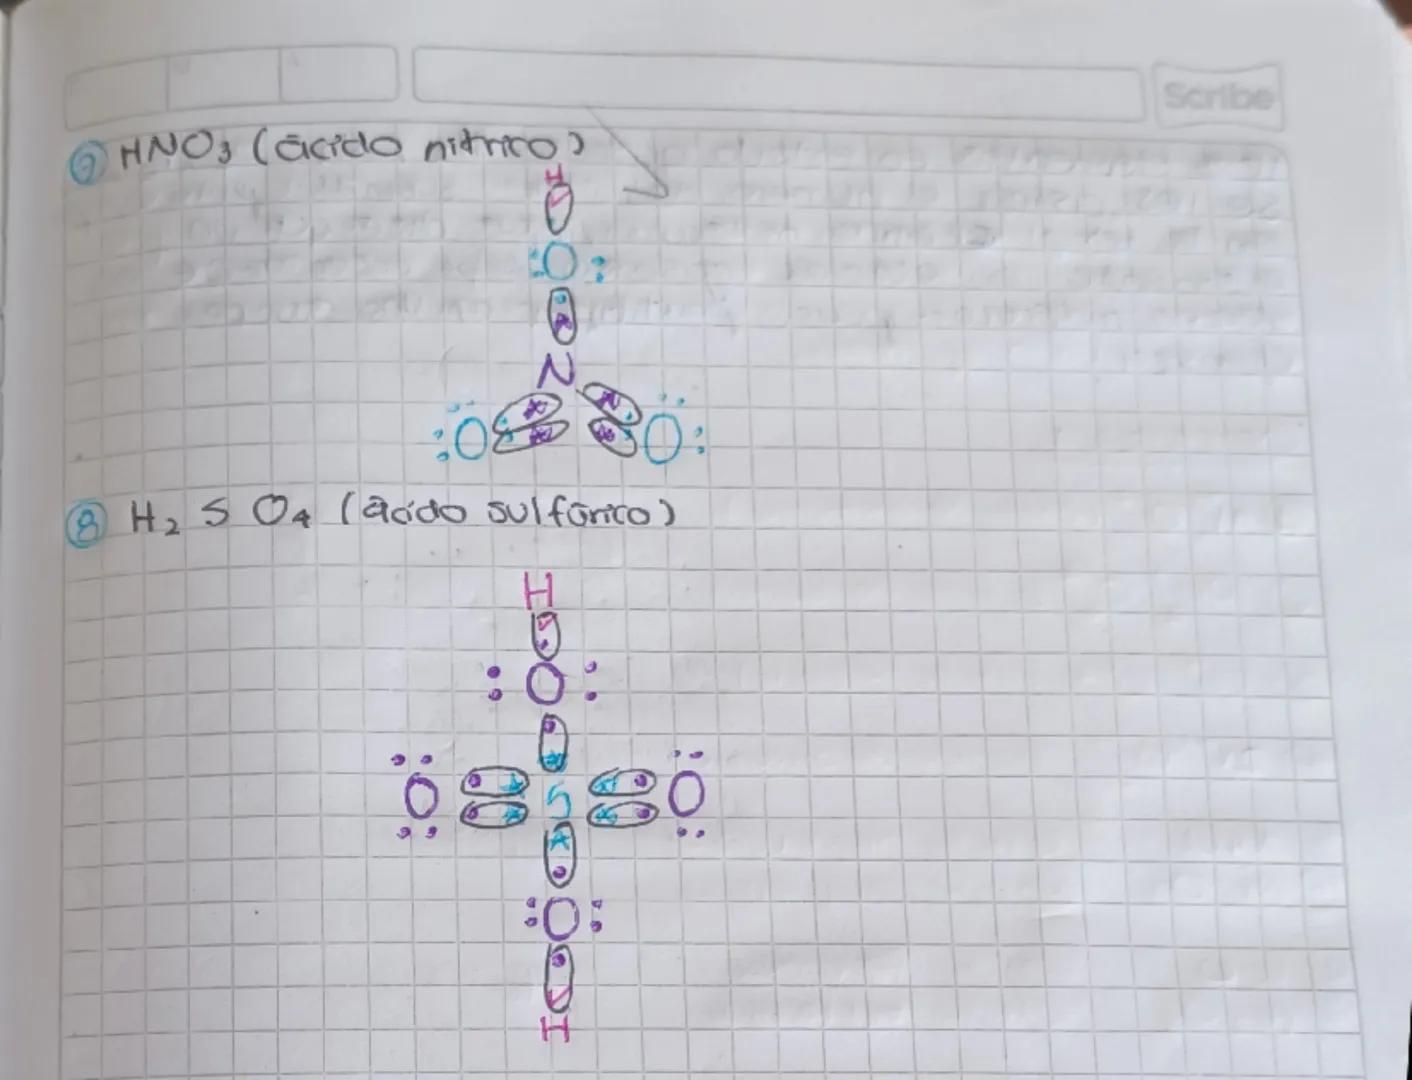 Scribe
⑦ HNO₃ (ácido nitrico)
H
:O:
N
:O O:
⑧ H₂ S O₄ (ácido sulfúrico)
H
:O:
O S O
:O:
H